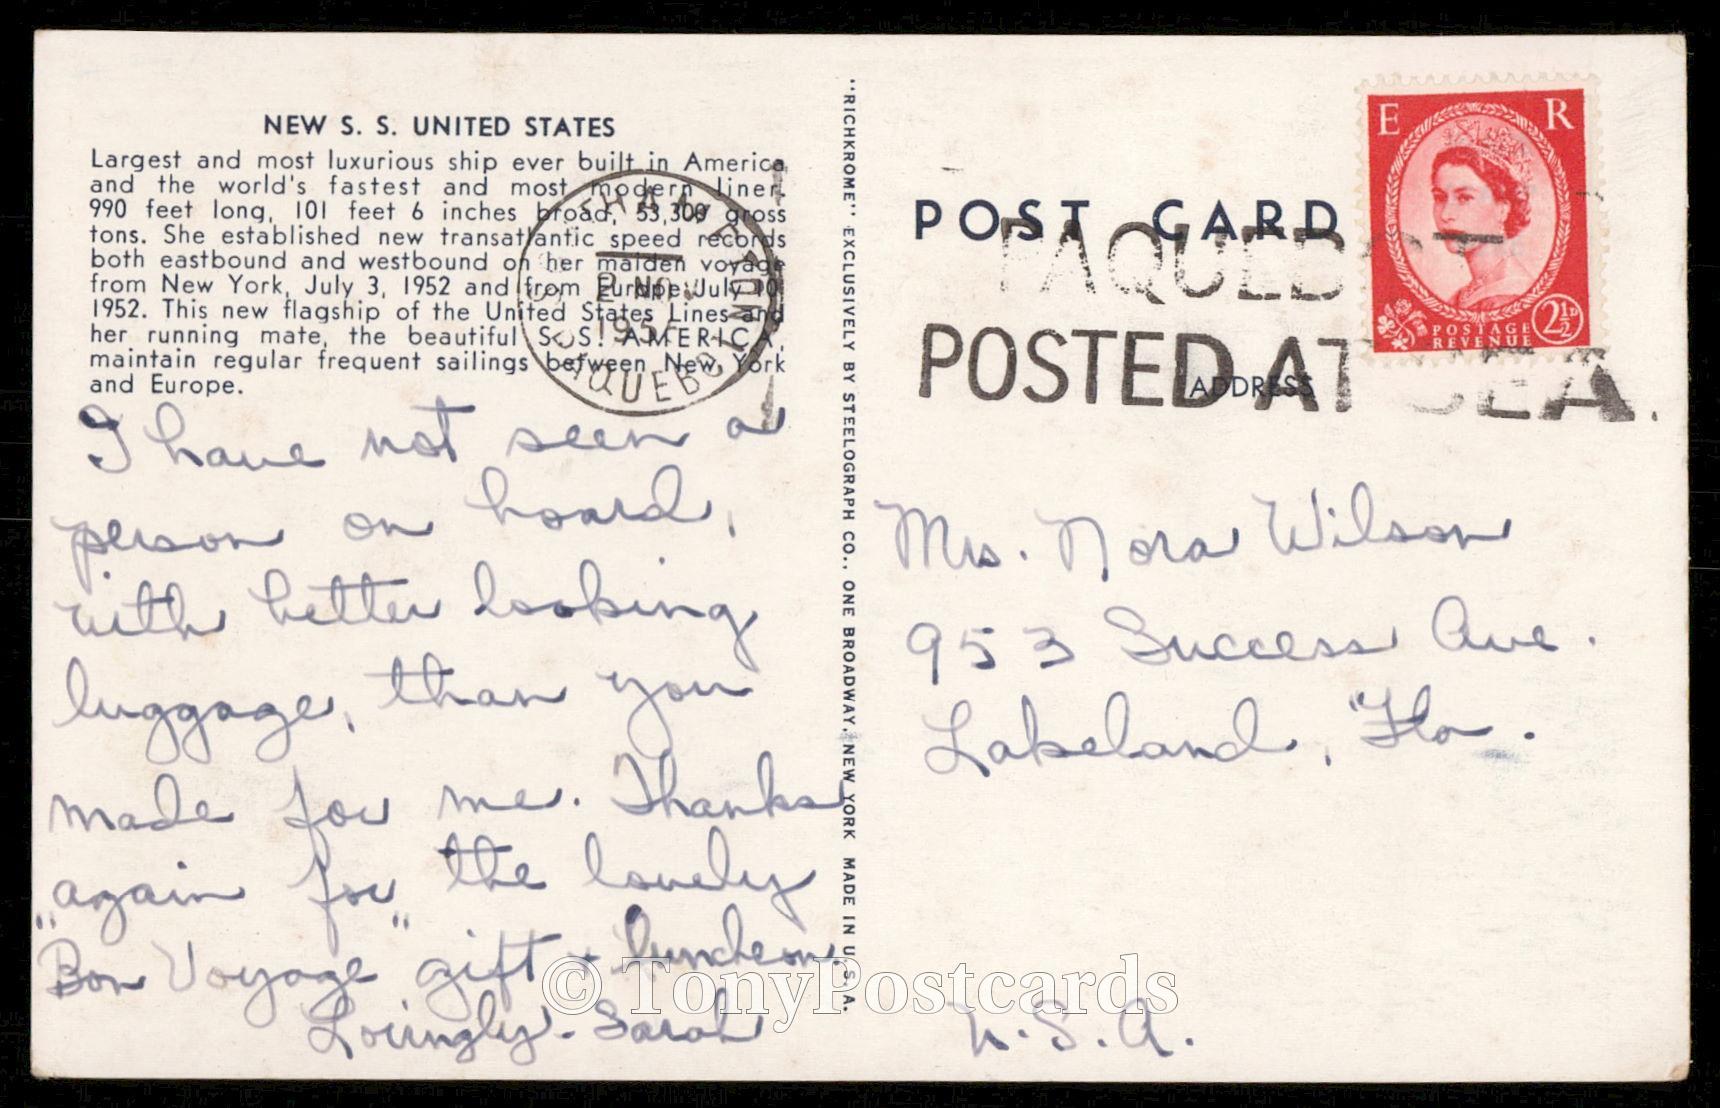 NEW S. S. UNITED STATES
Largest and most luxurious ship ever built in America
and the world's fastest and most modern liner.
990 feet long, 101 feet 6 inches broad, 53,309 gross
tons. She established new transatlantic speed records
both eastbound and westbound on her maiden voyage
from New York, July 3, 1952 and from Europe July 10
1952. This new flagship of the United States Lines and
her running mate, the beautiful S.S. AMERICA,
maintain regular frequent sailings between New York
and Europe.
SOUTHAMPTON
2 NOV
195
PAQUEBOT
I have not seen a
person on board,
with better looking
luggage, than you
made for me. Thanks
again for the lovely
"Bon Voyage" gift + luncheon.
Lovingly - Sarah
"RICHKROME" EXCLUSIVELY BY STEELOGRAPH CO., ONE BROADWAY, NEW YORK MADE IN U.S.A.
POST CARD
PAQUEBOT
POSTED AT SEA.
ADDRESS
E R
POSTAGE
REVENUE
2½D
Mrs. Nora Wilson
953 Success Ave.
Lakeland, Fla.
U.S.A.
© TonyPostcards